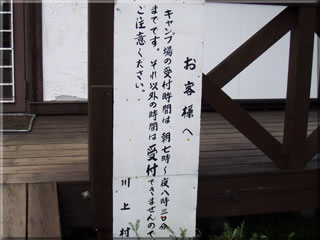 お客様へ
キャンプ場の受付時間は 朝七時〜夜八時三〇分
までです。それ以外の時間は受付できませんので
ご注意ください。
川上村